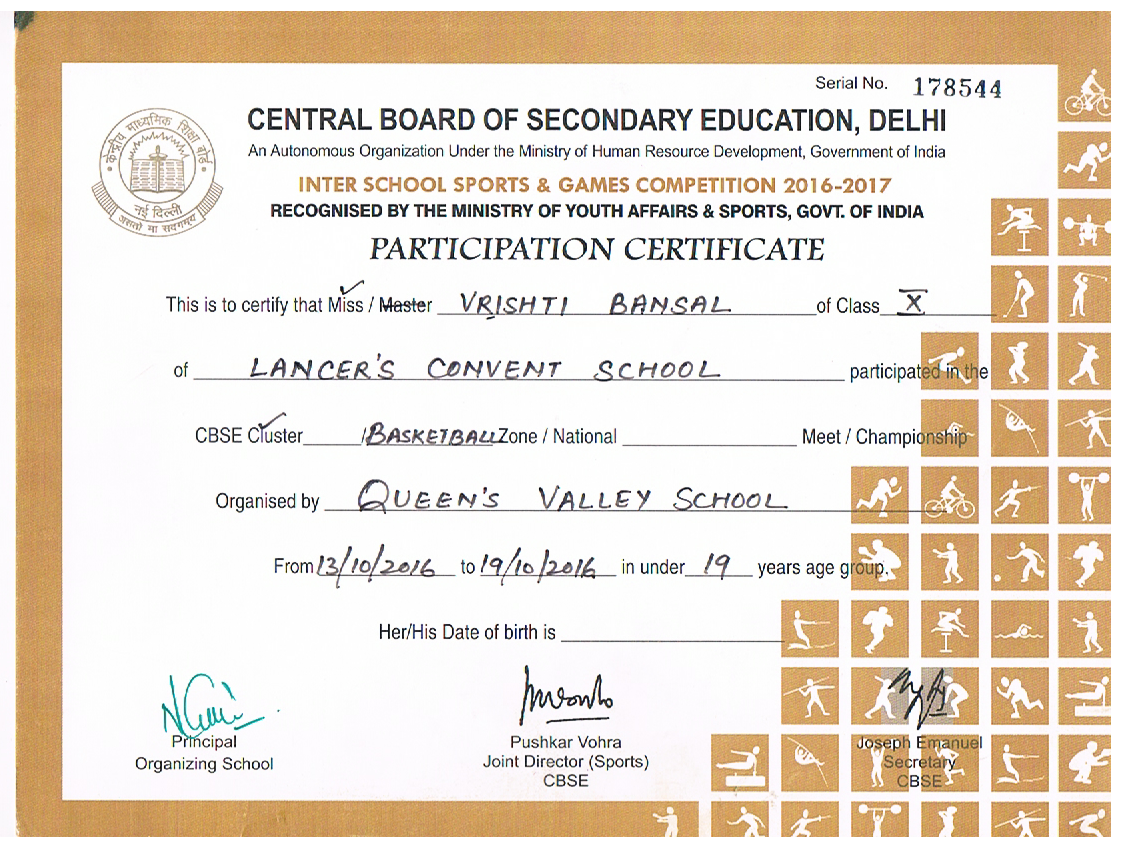 Serial No. 178544
केन्द्रीय माध्यमिक शिक्षा बोर्ड
नई दिल्ली
असतो मा सद्गमय
CENTRAL BOARD OF SECONDARY EDUCATION, DELHI
An Autonomous Organization Under the Ministry of Human Resource Development, Government of India
INTER SCHOOL SPORTS & GAMES COMPETITION 2016-2017
RECOGNISED BY THE MINISTRY OF YOUTH AFFAIRS & SPORTS, GOVT. OF INDIA
PARTICIPATION CERTIFICATE
This is to certify that Miss / Master VRISHTI BANSAL of Class X
of LANCER'S CONVENT SCHOOL participated in the
CBSE Cluster /BASKETBALL Zone / National Meet / Championship
Organised by QUEEN'S VALLEY SCHOOL
From 13/10/2016 to 19/10/2016 in under 19 years age group.
Her/His Date of birth is
Principal
Organizing School
Pushkar Vohra
Joint Director (Sports)
CBSE
Joseph Emanuel
Secretary
CBSE